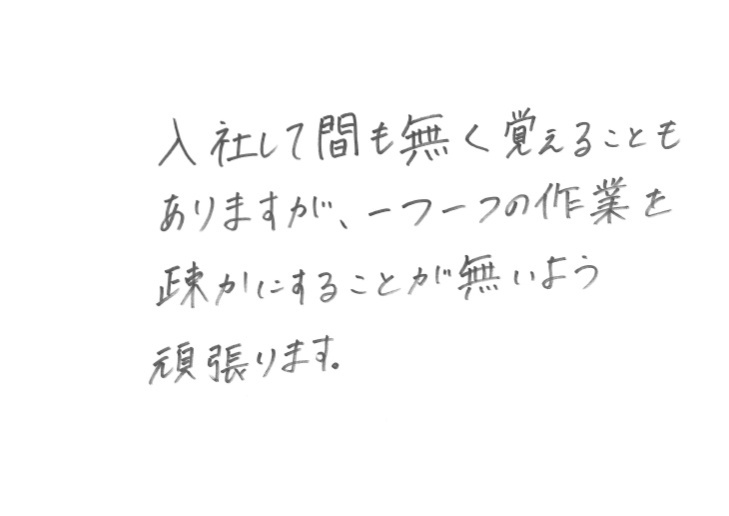 入社して間も無く覚えることも
ありますが、一つ一つの作業を
疎かにすることが無いよう
頑張ります。